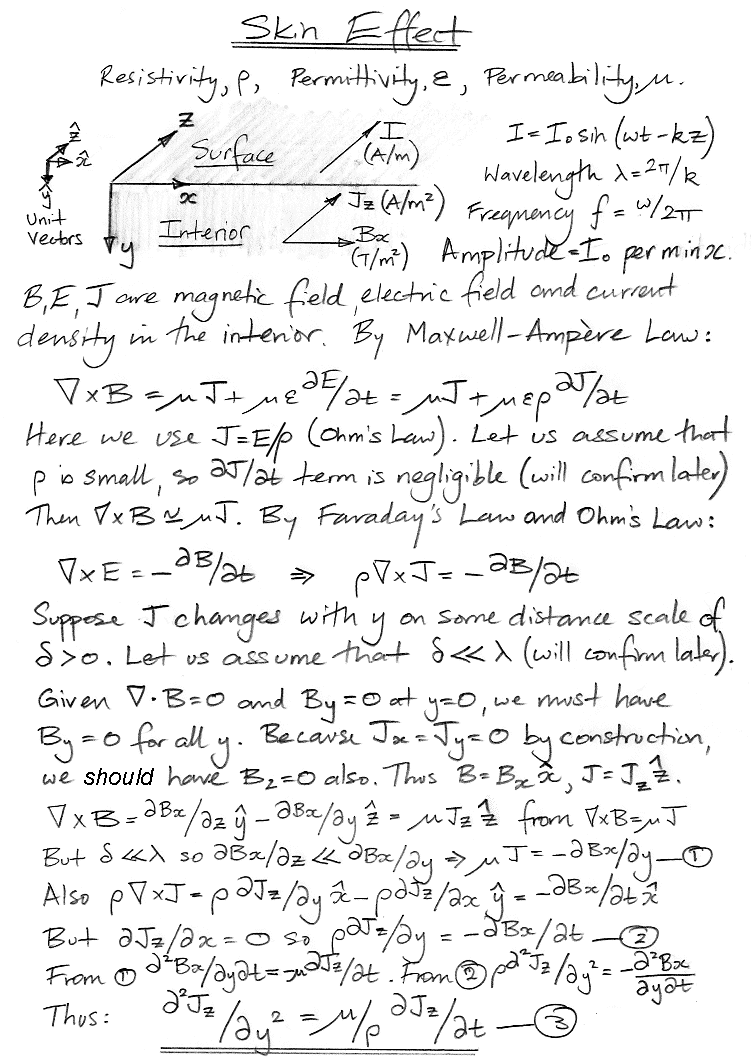 Skin Effect
Resistivity, ρ, Permittivity, ε, Permeability, μ.
ẑ
x̂
ŷ
Unit
Vectors
z
Surface
x
Interior
y
I
(A/m)
Jz (A/m²)
Bx
(T/m²)
I = I₀ sin (ωt - kz)
Wavelength λ = 2π/k
Frequency f = ω/2π
Amplitude = I₀ per m in x.
B, E, J are magnetic field, electric field and current
density in the interior. By Maxwell-Ampère Law:
∇×B = μJ + με ∂E/∂t = μJ + μερ ∂J/∂t
Here we use J=E/ρ (Ohm's Law). Let us assume that
ρ is small, so ∂J/∂t term is negligible (will confirm later)
Then ∇×B ≃ μJ. By Faraday's Law and Ohm's Law:
∇×E = -∂B/∂t ⇒ ρ∇×J = -∂B/∂t
Suppose J changes with y on some distance scale of
δ>0. Let us assume that δ≪λ (will confirm later).
Given ∇·B=0 and By=0 at y=0, we must have
By=0 for all y. Because Jx=Jy=0 by construction,
we should have Bz=0 also. Thus B=Bx x̂, J=Jz ẑ.
∇×B = ∂Bx/∂z ŷ - ∂Bx/∂y ẑ = μJz ẑ from ∇×B=μJ
But δ≪λ so ∂Bx/∂z ≪ ∂Bx/∂y ⇒ μJ = -∂Bx/∂y — ①
Also ρ∇×J = ρ∂Jz/∂y x̂ - ρ∂Jz/∂x ŷ = -∂Bx/∂t x̂
But ∂Jz/∂x = 0 so ρ∂Jz/∂y = -∂Bx/∂t — ②
From ① ∂²Bx/∂y∂t = -μ∂Jz/∂t. From ② ρ∂²Jz/∂y² = -∂²Bx/∂y∂t
Thus: ∂²Jz/∂y² = μ/ρ ∂Jz/∂t — ③